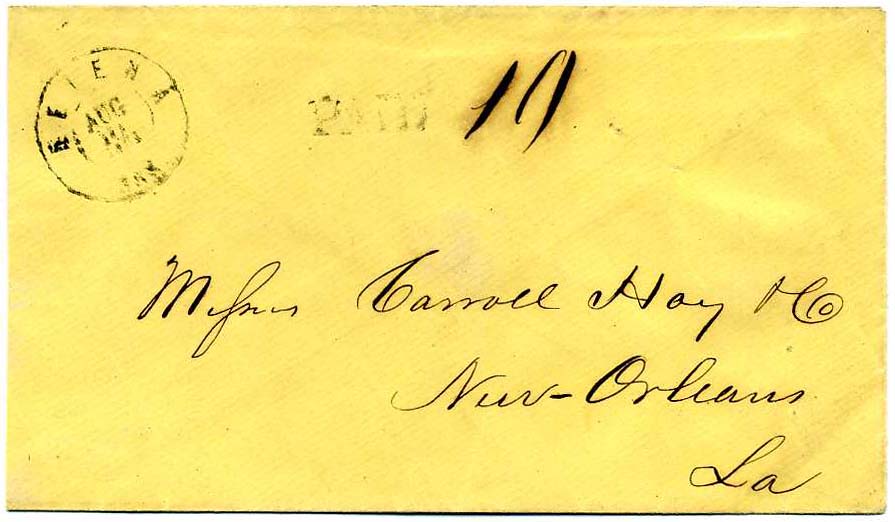 HELENA
AUG
ARK
PAID 10
Messrs Carroll Hoy & Co
New-Orleans
La